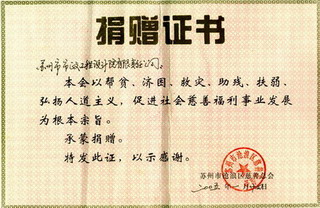 捐赠证书
苏州市市政工程设计院有限责任公司:
本会以帮贫、济困、救灾、助残、扶弱、
弘扬人道主义,促进社会慈善福利事业发展
为根本宗旨。
承蒙捐赠。
特发此证,以示感谢。
苏州市沧浪区慈善总会
二〇〇五年一月